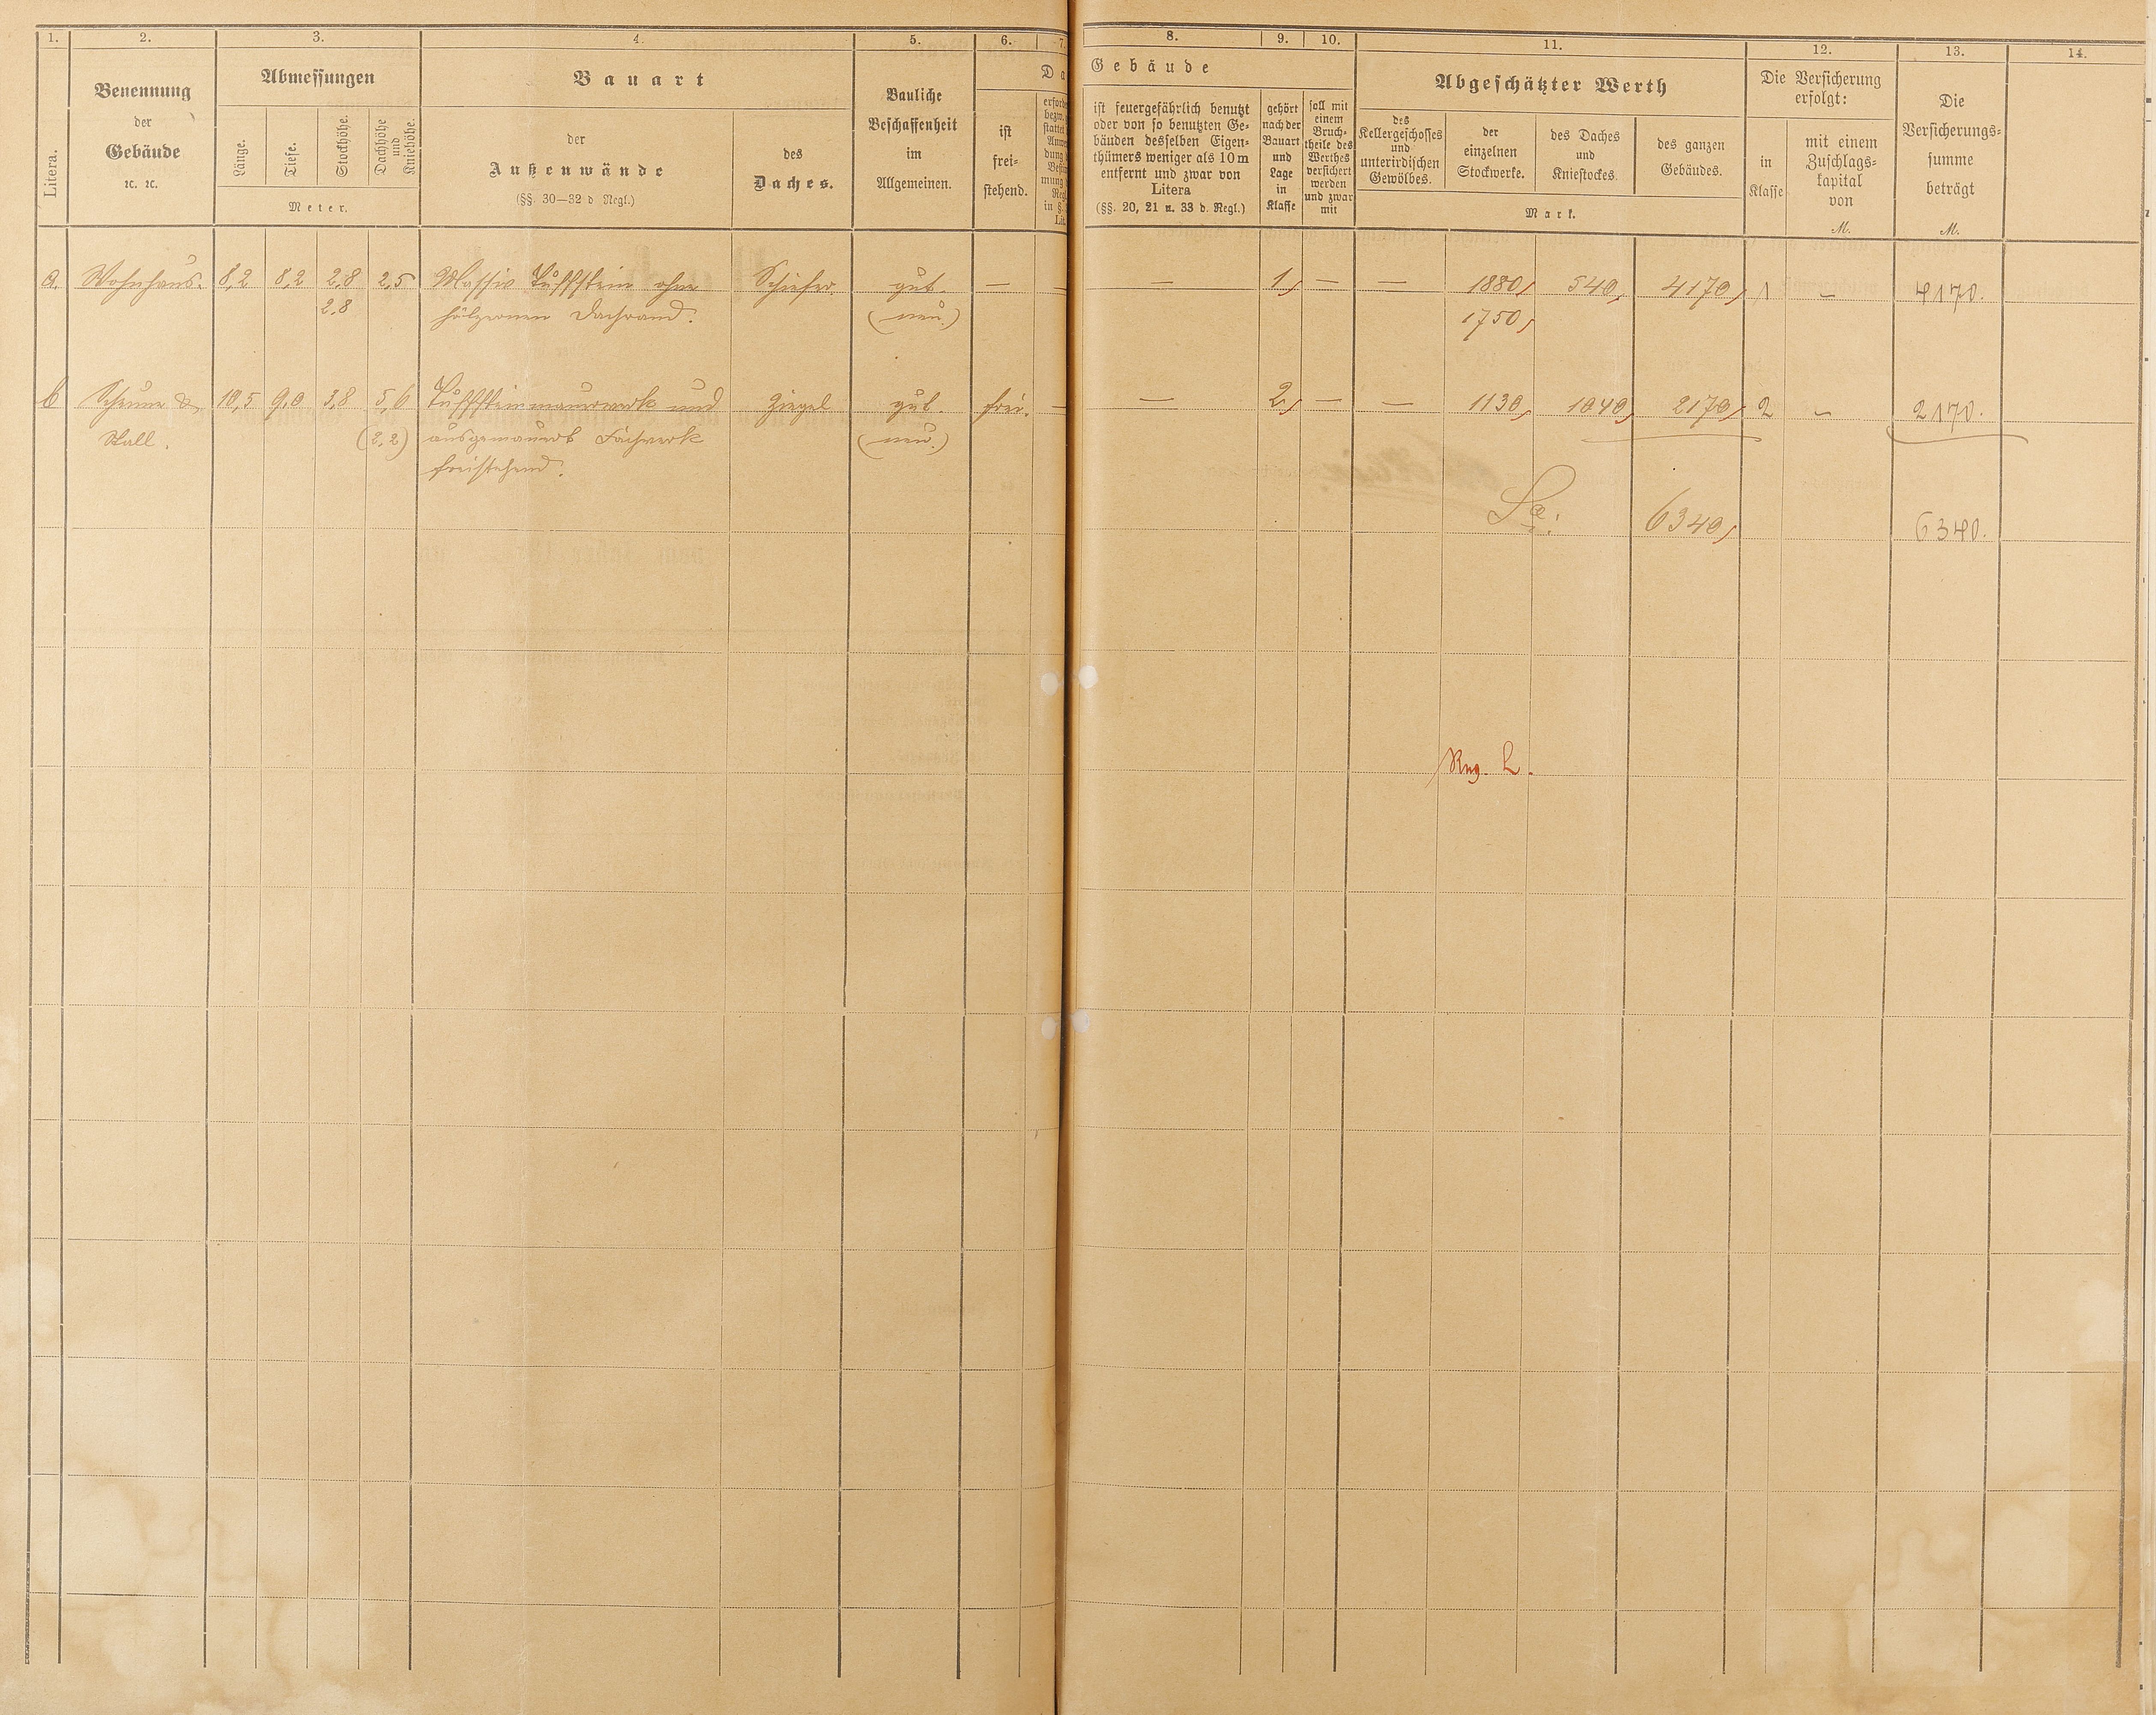 1. 2. 3. 4. 5. 6. 7. 8. 9. 10. 11. 12. 13. 14.
Litera.
Benennung
der
Gebäude
ꝛc. ꝛc.
Abmessungen
Länge.
Tiefe.
Stockhöhe.
Dachhöhe
und
Kniehöhe.
Meter.
Bauart
der
Außenwände
(§§. 30—32 d Regl.)
des
Daches.
Bauliche
Beschaffenheit
im
Allgemeinen.
Da
ist
frei-
stehend.
Gebäude
ist feuergefährlich benutzt
oder von so benutzten Ge-
bäuden desselben Eigen-
thümers weniger als 10 m
entfernt und zwar von
Litera
(§§. 20, 21 u. 33 d. Regl.)
gehört
nach der
Bauart
und
Lage
in
Klasse
soll mit
einem
Bruch-
theile des
Werthes
versichert
werden
und zwar
mit
Abgeschätzter Werth
des
Kellergeschosses
und
unterirdischen
Gewölbes.
der
einzelnen
Stockwerke.
des Daches
und
Kniestockes.
des ganzen
Gebäudes.
Mark.
Die Versicherung
erfolgt:
in
Klasse
mit einem
Zuschlags-
kapital
von
M.
Die
Versicherungs-
summe
beträgt
M.
a. Wohnhaus. 8,2 8,2 2,8 2,5 Massiv Tuffstein ohne Schiefer. gut. — — — 1, — — 1880, 540, 4170, 1 — 4170.
2,8 hölzernen Dachrand. (neu.) 1750,
b Scheune & 10,5 9,0 3,8 5,6 Tuffsteinmauerwerk und Ziegel gut. frei. — — 2, — — 1130, 1040, 2170, 2 — 2170.
Stall. (2,2) ausgemauert Fachwerk (neu.)
freistehend.
Sa. 6340, 6340.